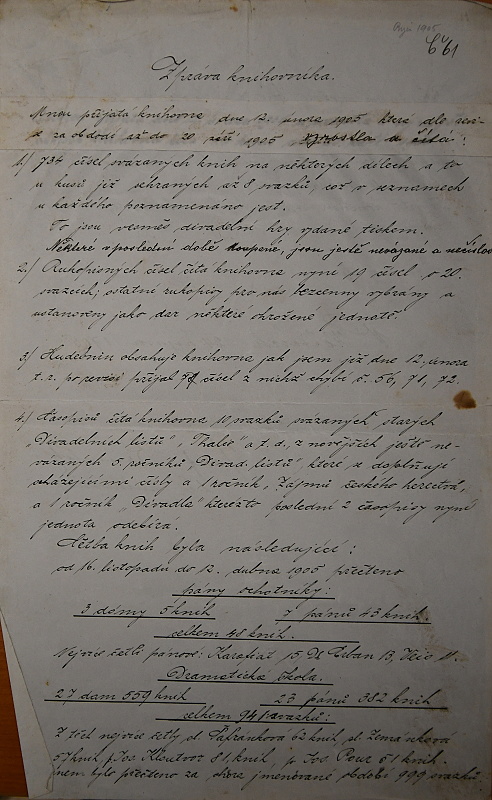 Říj 1905
Čís 61
Zpráva knihovníka.
Mnou přijatá knihovna dne 12. února 1905 která dle revi-
se za období až do 20 září 1905 vzrostla a čítá:
1./ 734 čísel svázaných knih na některých dílech a to
u kusů již sehraných až 8 svazků, což v seznamech
u každého poznamenáno jest.
To jsou vesměs divadelní hry vydané tiskem.
Některé v poslední době koupené, jsou ještě nevázané a nečíslov
2./ Rukopisných čísel čítá knihovna nyní 19 čísel o 20.
svazcích; ostatní rukopisy pro nás bezcenny vybrány a
ustanoveny jako dar některé ohrožené jednotě.
3./ Hudebnin obsahuje knihovna jak jsem již dne 12. února
t. r. po revisi přijal 78 čísel z nichž chybí č. 56, 71, 72.
4./ Časopisů čítá knihovna 10 svazků svázaných starých
„Divadelních listů", „Thalie" a t. d., z novějších ještě ne-
vázaných 5. ročníků „Divad. listů", které se doplňují
scházejícími čísly a 1 ročník, Zájmů českého herectva,
a 1 ročník „Divadla" kterežto poslední 2 časopisy nyní
jednota odebírá.
Četba knih byla následující:
od 16. listopadu do 12. dubna 1905 přečteno
pány ochotníky:
3 dámy 5 knih 7 pánů 43 knih.
celkem 48 knih.
Nejvíce četli pánové: 15 Urban 13,
Dramatická škola.
27 dam 559 knih 23 pánů 382 knih
celkem 941 svazků:
Z těch nejvíce četly sl. Šafránkova 62 knih, sl. Zemánkova
57 knih, p. Jos. 81 knih, p. Jos 61 knih.
přečteno za shora jmenované období 999 svazků